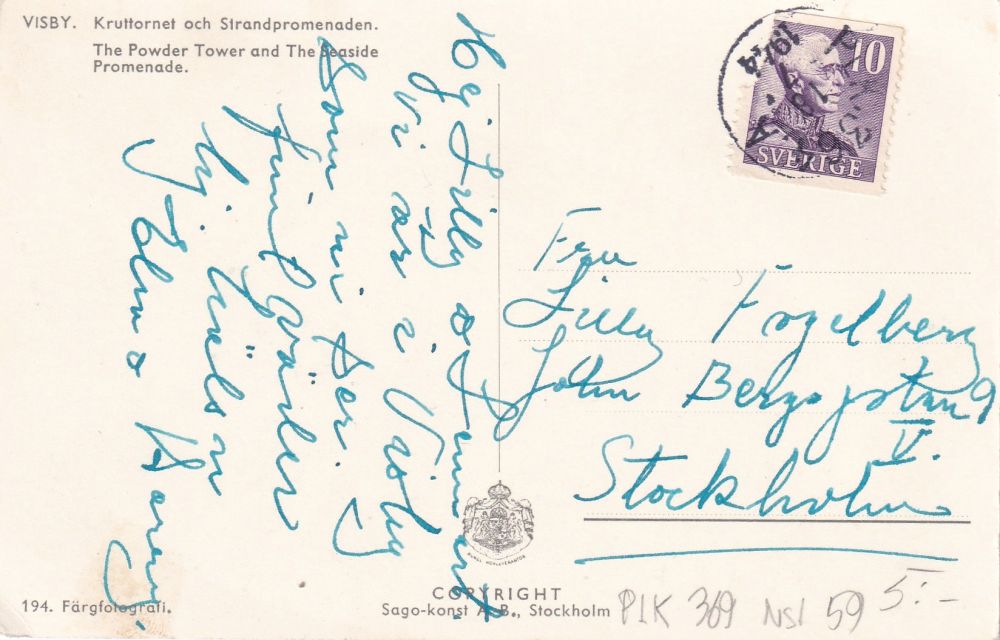 VISBY. Kruttornet och Strandpromenaden.
The Powder Tower and The Seaside
Promenade.
Hej Lilly o Lennart
Vi är i Visby
Som ni ser.
Hj. hälsn
Elna
194. Färgfotografi.
COPYRIGHT
Sago-konst A. B., Stockholm
KUNGL. HOVLEVERANTÖR
10
SVERIGE
1944
Fru
Lilly Fogelberg
John
V.
Stockholm
PLK 369 NSL 59 5:-